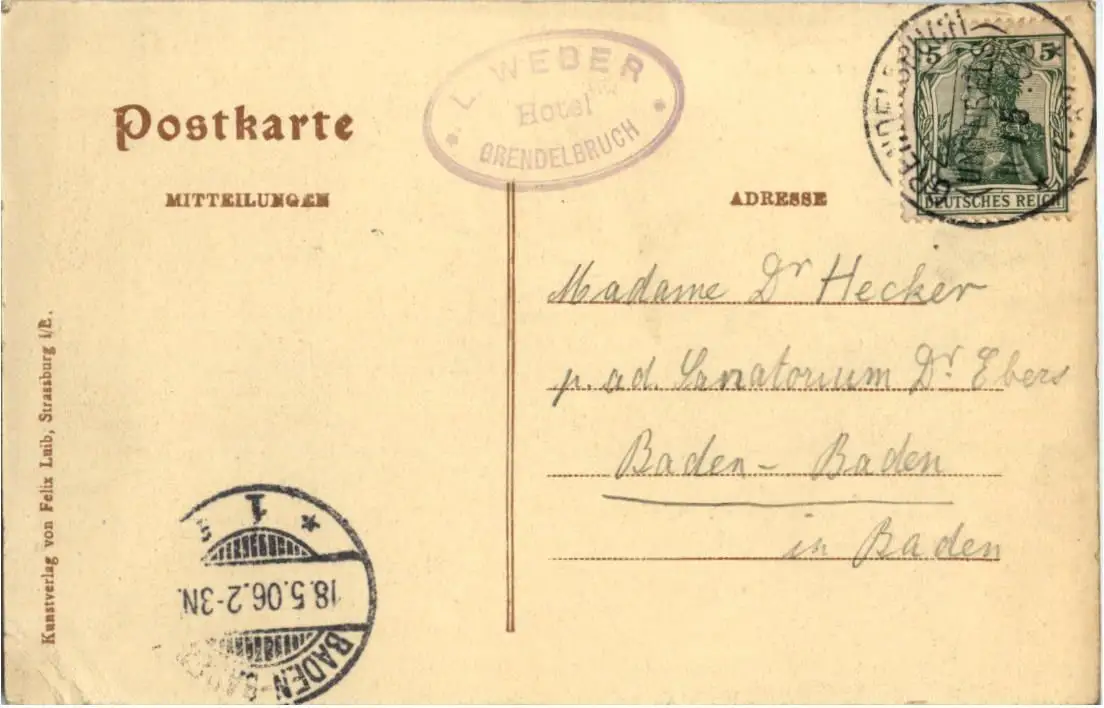 L. WEBER
Hotel
GRENDELBRUCH
GRENDELBRUCH
(UNTERELSASS)
5 5
DEUTSCHES REICH
Postkarte
MITTEILUNGEN
ADRESSE
Madame Dr Hecker
p. ad. Sanatorium Dr. Ebers
Baden-Baden
in Baden
Kunstverlag von Felix Luib, Strassburg i/E.
1
18.5.06.2-3N.
BADEN-BADEN